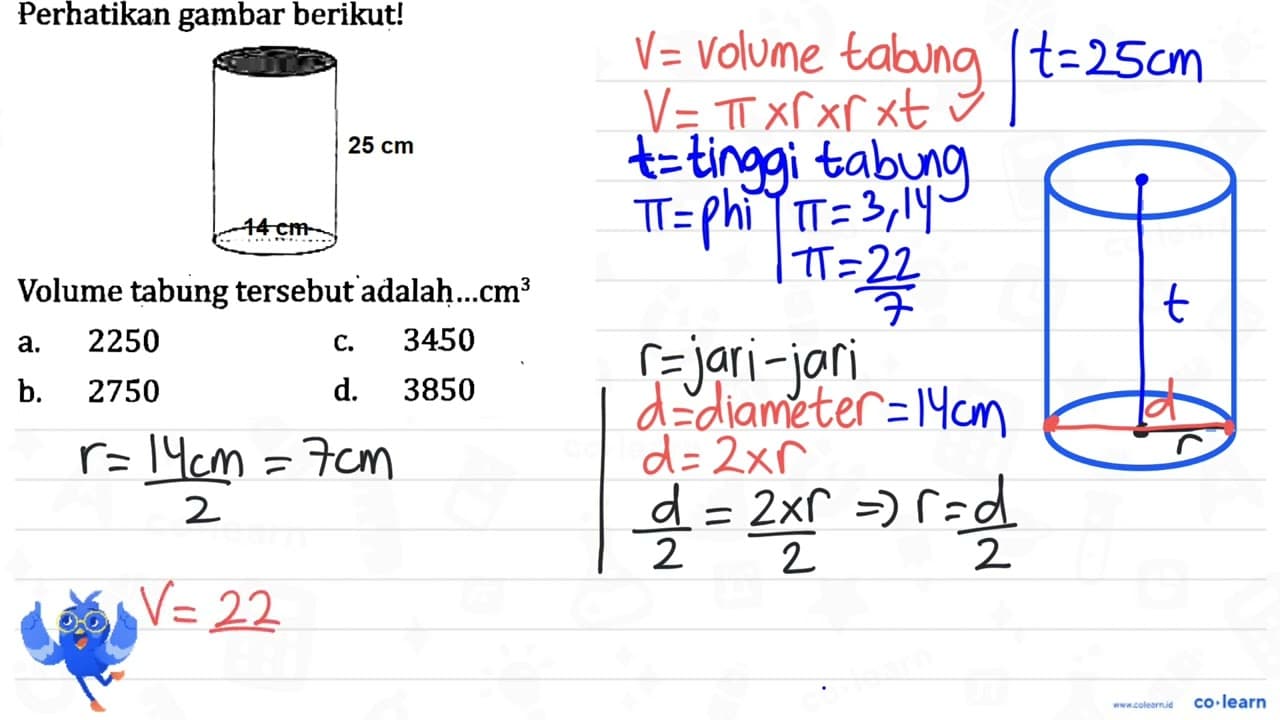 Perhatikan gambar berikut!
25 cm
14 cm
Volume tabung tersebut adalah...cm³
a. 2250 c. 3450
b. 2750 d. 3850
r = 14cm/2 = 7cm
V = 22
V = volume tabung | t = 25cm
V = π x r x r x t ✓
t = tinggi tabung
π = phi | π = 3,14
π = 22/7
t
r = jari-jari
d = diameter = 14cm
d
r
d = 2xr
d/2 = 2xr/2 => r = d/2
www.colearn.id co·learn